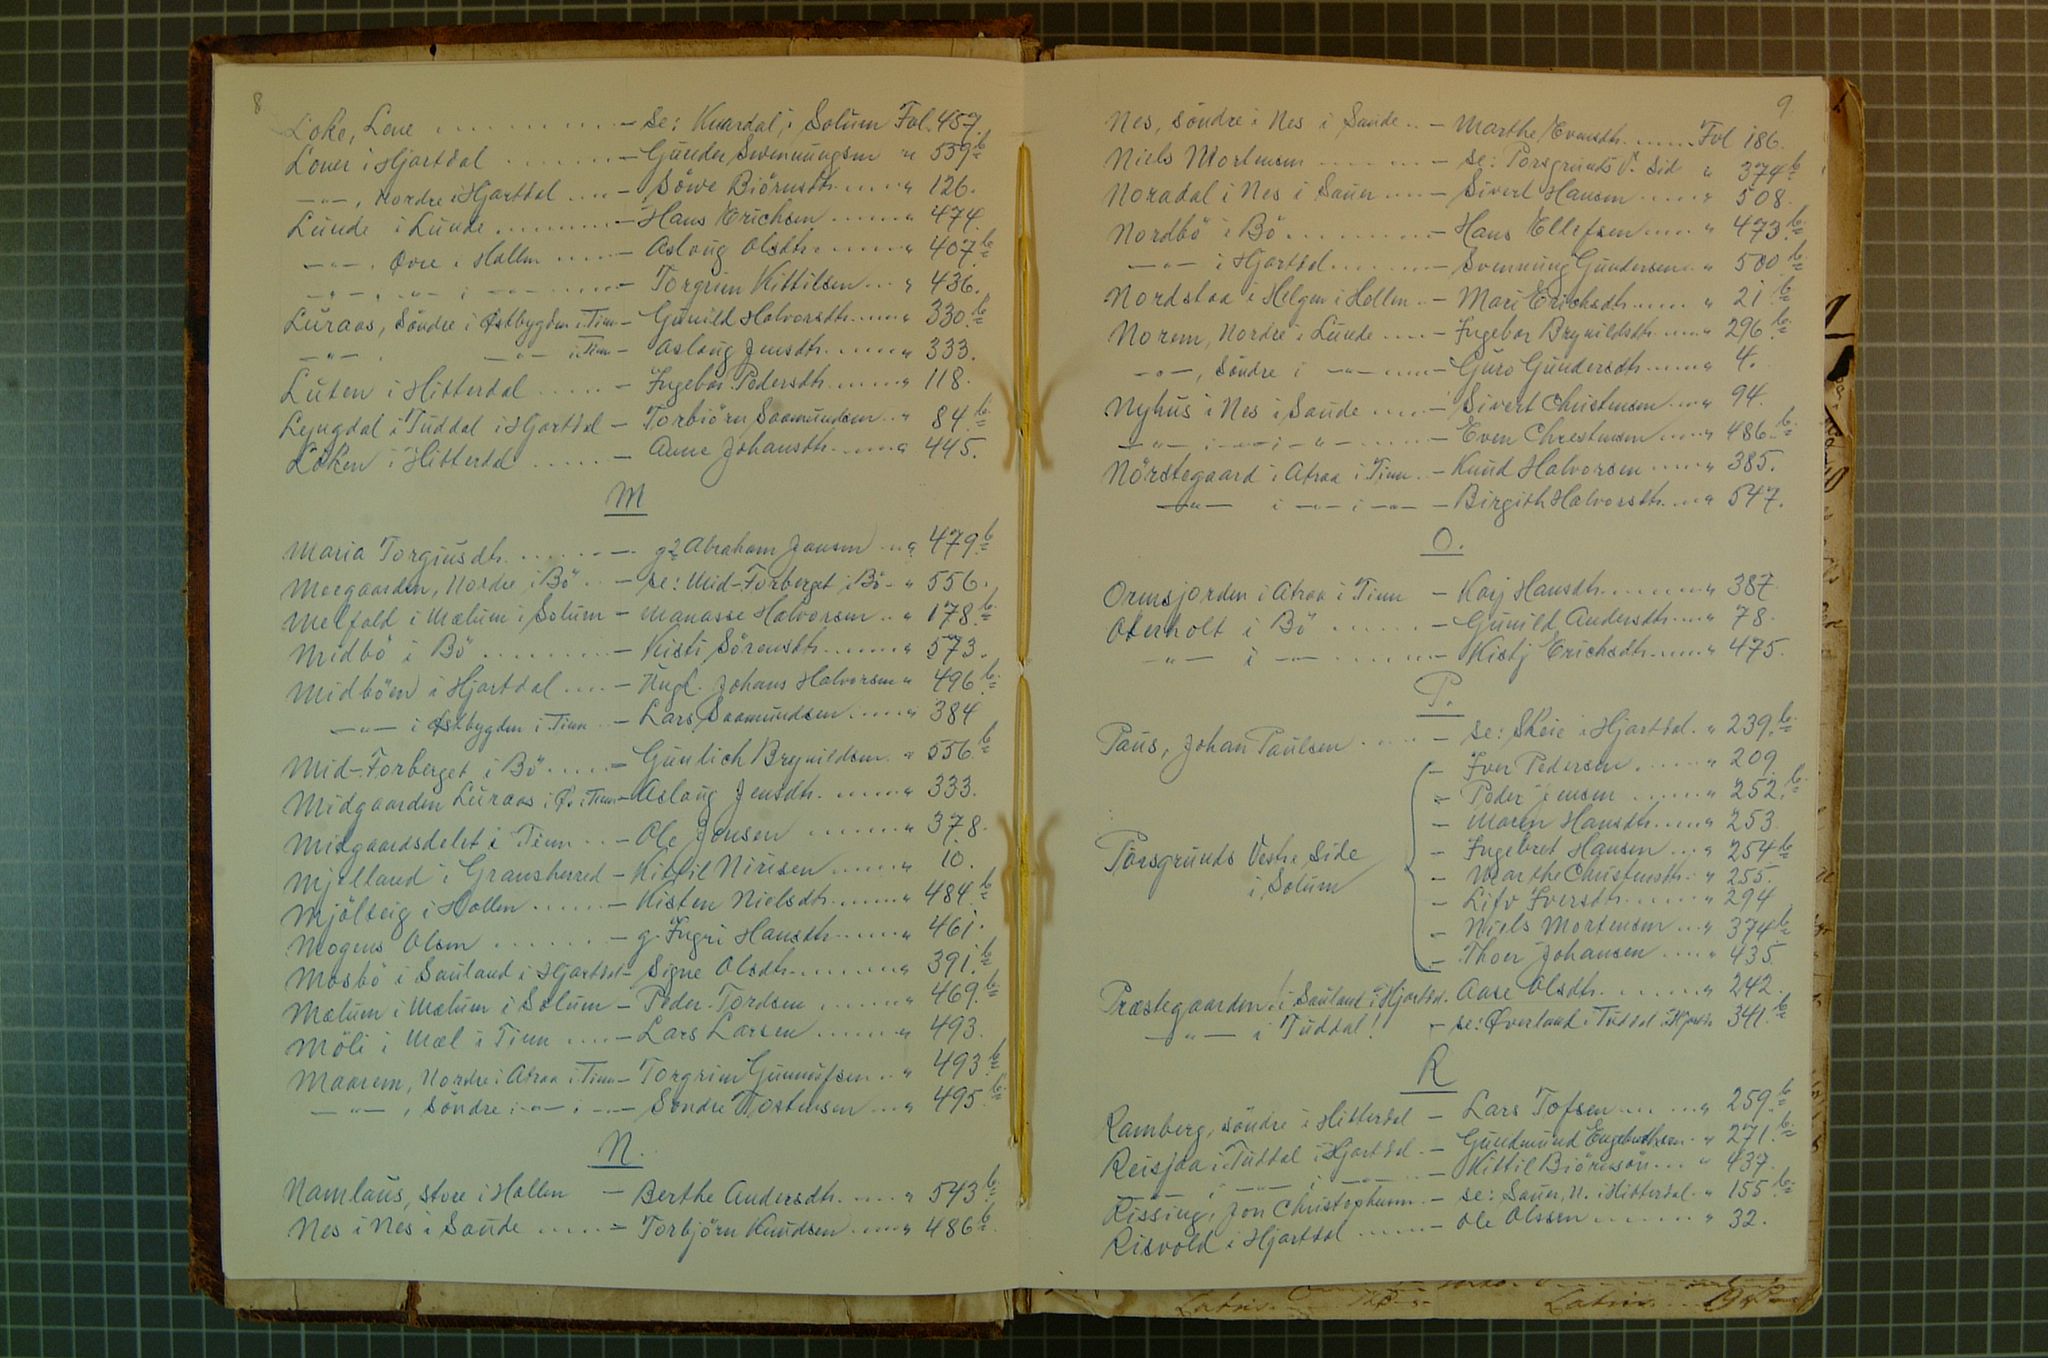 8
Loke, Lene ........ — se: Kvardal, i Solum Fol. 457.
Loner i Hjartdal ....... — Gunder Svennungsen " 559 b.
—"—, Nordre i Hjartdal .... — Söwe Biörnsdtr. ..... " 126.
Lunde i Lunde ........ — Hans Erichsen ...... " 474.
—"—. Øvre i Hollen ..... — Aslaug Olsdtr. ...... " 407 b.
—"—, —"— i —"— ..... — Torgrim Kittilsen ... " 436.
Luraas, Söndre i Østbygden i Tinn — Gunild Halvorsdtr. ... " 330 b.
—"—. —"— i Tinn — Aslaug Jensdtr. ...... " 333.
Luten i Hitterdal ..... — Ingebor Pedersdtr. .... " 118.
Lyngdal i Tuddal i Hjartdal — Torbiörn Saamundsen .. " 84 b.
Löken i Hitterdal ..... — Anne Johansdtr. .... " 445.
M
Maria Torgiusdtr. ....... — g2 Abraham Jansen .. " 479 b.
Moegaarden, Nordre i Bö .. — se: Mid-Forberget i Bö .. " 556.
Melfald i Mælum i Solum — Manasse Halvorsen .. " 178 b.
Midbö i Bö ......... — Kisti Sörensdtr. ...... " 573.
Midböen i Hjartdal .... — Ungk. Johans Halvorsen " 496 b.
—"— i Østbygden i Tinn .. — Lars Saamundsen ..... " 384
Mid-Forberget i Bö ..... — Gunlich Brynildsen .. " 556 b.
Midgaarden Luraas i Ø. i Tinn — Aslaug Jensdtr. ..... " 333.
Midgaardsdelet i Tinn ... — Ole Jensen ....... " 378.
Mjelland i Gransherred — Kittil Nirisen ..... " 10.
Mjölteig i Hollen ...... — Kisten Nielsdtr. ..... " 484 b.
Mogens Olsen ...... — g. Ingri Hansdtr. ..... " 461.
Mosbö i Sauland i Hjartdal — Signe Olsdtr. ....... " 391 b.
Mælum i Mælum i Solum — Peder Tordsen ...... " 469 b.
Möli i Mæl i Tinn .... — Lars Larsen ...... " 493.
Maarem, Nordre i Atraa i Tinn — Torgrim Gunnulfsen .. " 493 b.
—"—, Söndre i —"— i —"— Söndre Tostensen ... " 495 b.
N.
Namlaus, store i Hollen — Berthe Andersdtr. ..... " 543 b.
Nes i Nes i Saude ..... — Torbjörn Knudsen .... " 486 b.
9.
Nes, Söndre i Nes i Saude .. — Marthe Evensdtr. ...... Fol 186.
Niels Mortensen ....... — se: Porsgrunds V. Sid " 374 b.
Noradal i Nes i Sauer .... — Sivert Hansen ..... " 508.
Nordbö i Bö ......... — Hans Ellefsen .... " 473 b.
—"— i Hjartdal ........ — Svennung Gundersen .. " 500 b.
Nordstaa i Helgen i Hollen .. — Mari Erichsdtr. ..... " 21 b.
Norem, Nordre i Lunde .... — Ingebor Brynildsdtr. .... " 296 b.
—"—, Söndre i —"— .... — Guro Gundersdtr. .... " 4.
Nyhus i Nes i Saude .... — Sivert Christensen .... " 94.
—"— i —"— i —"— .... — Even Chrestensen .... " 486 b.
Nörstegaard i Atraa i Tinn .. — Knud Halvorsen ..... " 385.
—"— i —"— i —"— — Birgith Halvorsdtr. ... " 547.
O.
Ormsjorden i Atraa i Tinn — Karj Hansdtr. ....... " 387
Oterholt i Bö ...... — Gunild Andersdtr. .... " 78.
—"— i —"— ...... — Kistj Erichsdtr. ..... " 475.
P.
Paus, Johan Paulsen .... — se: Skeie i Hjartdal. " 239 b.
— Iver Pedersen ...... " 209.
— Peder Jensen ...... " 252 b.
— Maren Hansdtr. .... " 253.
Porsgrunds Vestre Side — Ingebret Hansen ... " 254 b.
i Solum — Marthe Christensdtr. .. " 255.
— Lisv Iversdtr. ...... " 294
— Niels Mortensen ... " 374 b.
— Thoer Johansen .... " 435.
Præstegaarden! i Sauland i Hjartdal. Aase Olsdtr. ....... " 242.
—"— i Tuddal! — se: Øverland i Tuddal i Hjartd. 341 b.
R
Ramberg, Söndre i Hitterdal — Lars Tofsen ... ... " 259 b.
Reisjaa i Tuddal i Hjartdal .. — Gundmund Engebrethsen .. " 271 b.
—"— i —"— i —"— — Kittil Biörnsön ... " 437.
Rissing, Jon Christophersen .. — se: Sauer, N. i Hitterdal. " 155 b.
Risvold i Hjartdal ...... — Ole Olssen ........ " 32.